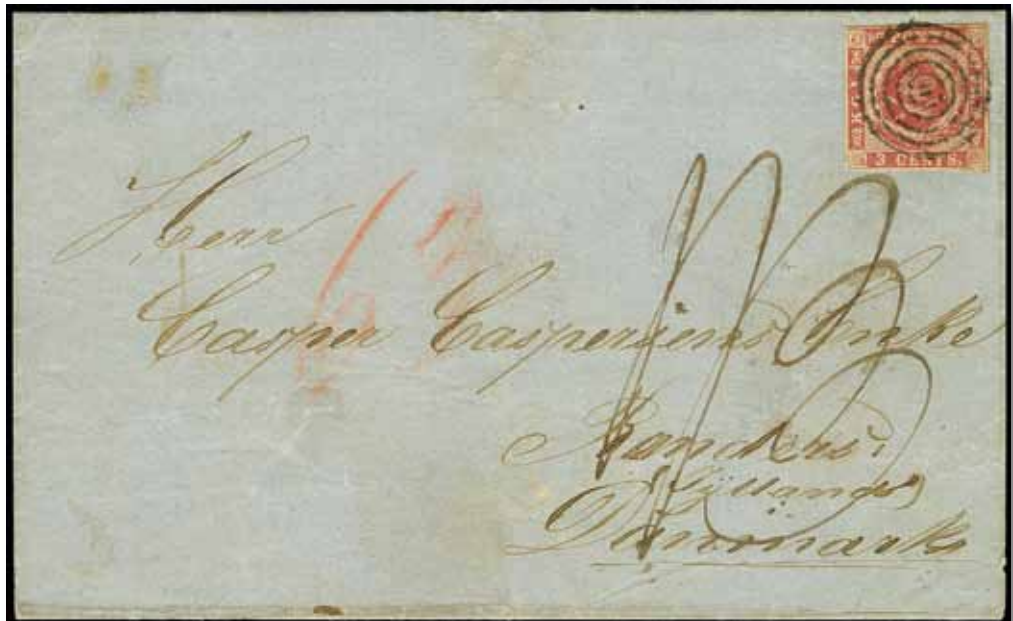 3 CENTS.
Herr
Casper Caspersens Enke
Randers.
Jÿlland
Danmark